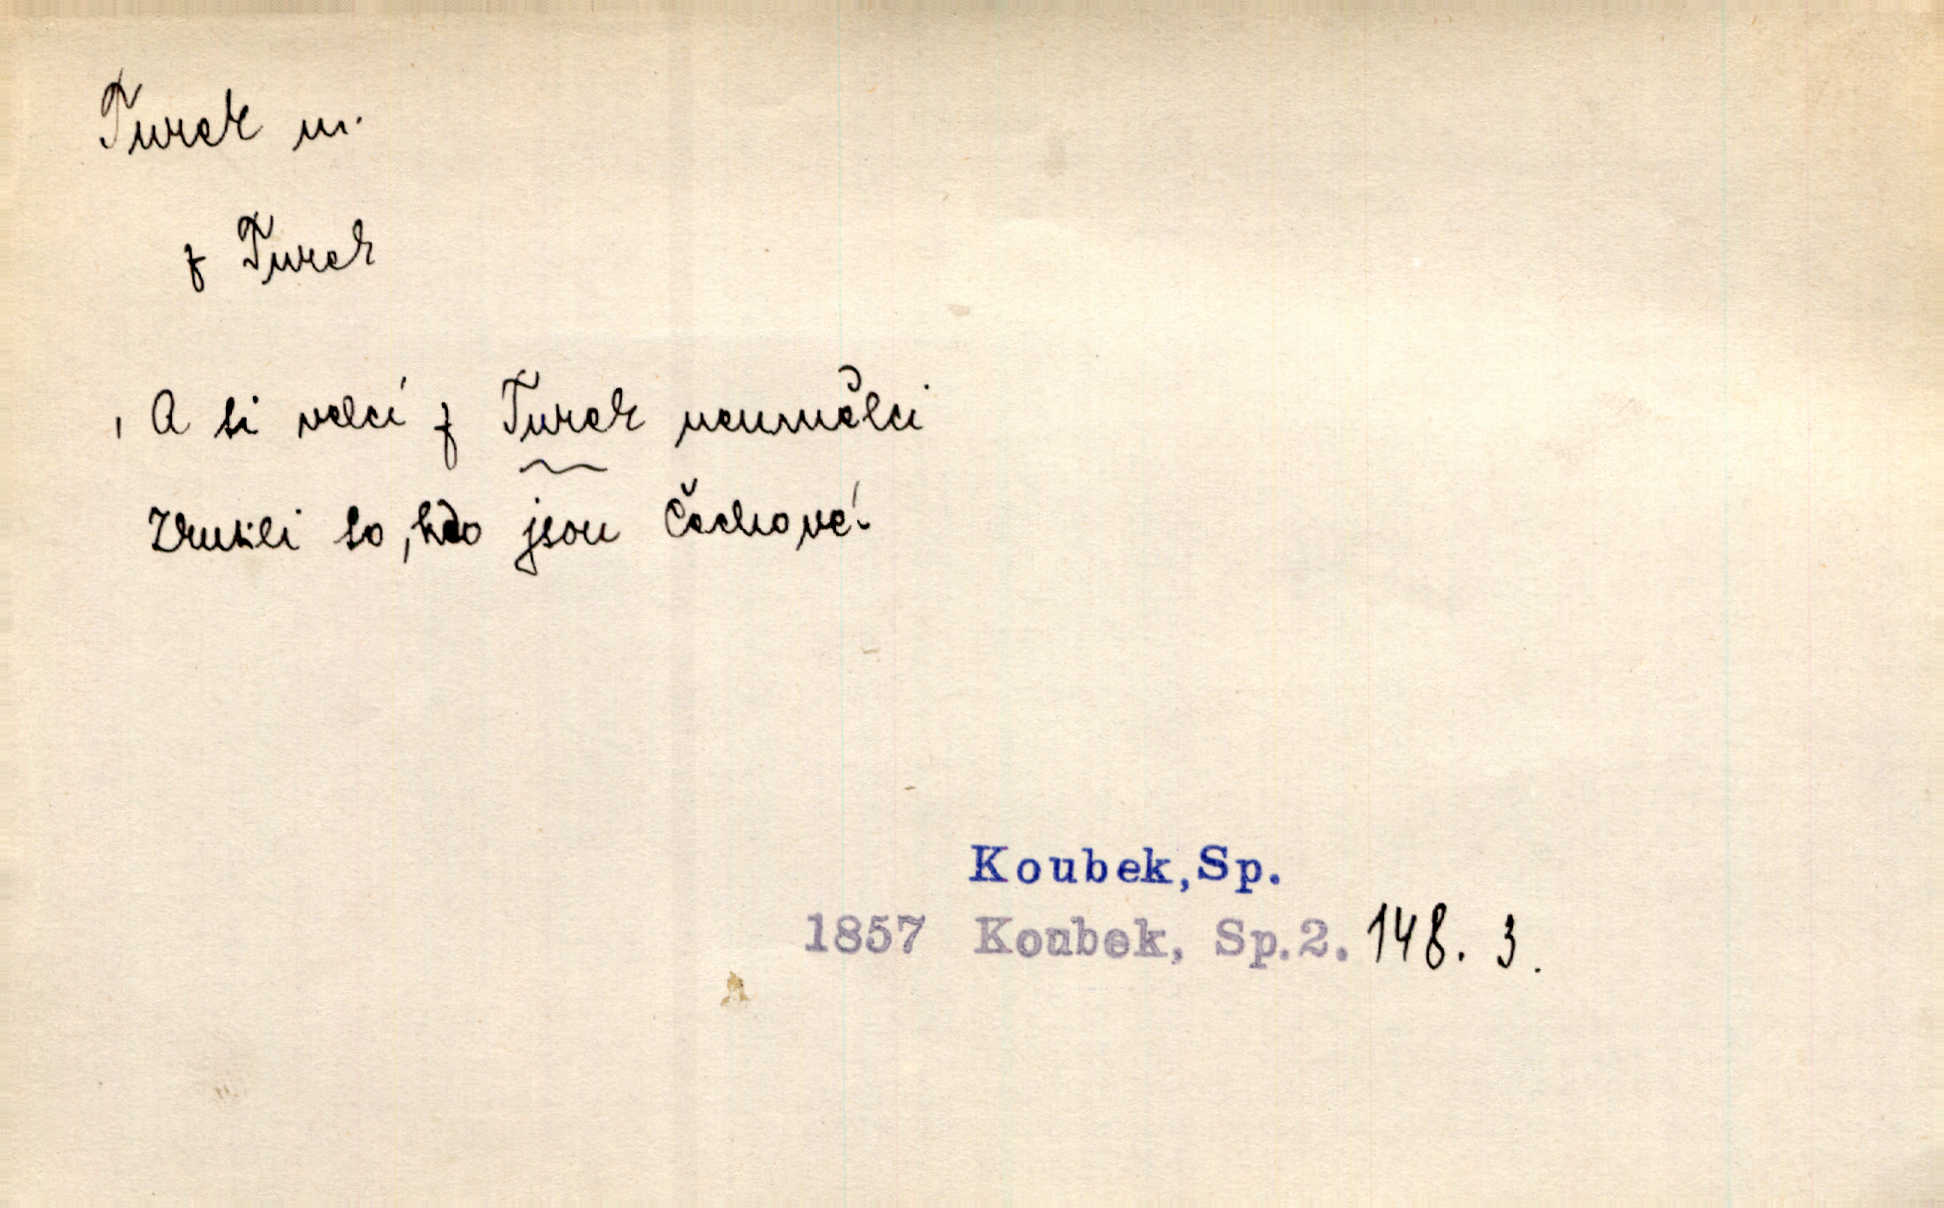 Turek m.
z Turek
, A ti velcí z Turek neumělci
Zkusili to, kdo jsou Čechové.
Koubek,Sp.
1857 Koubek, Sp.2. 148. 3.